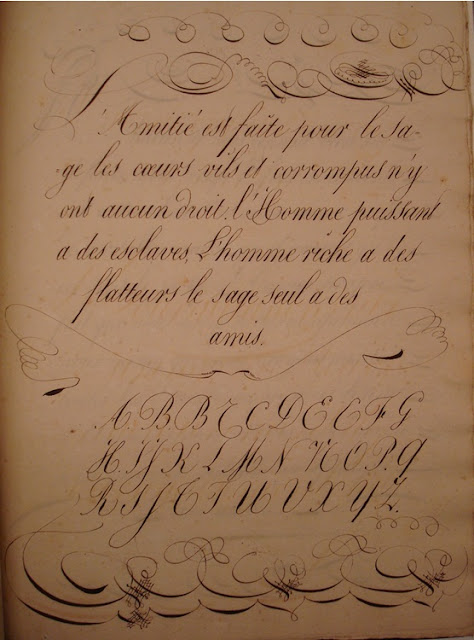 L'Amitié est faite pour le sa-
-ge les cœurs vils et corrompus n'y
ont aucun droit. l'Homme puissant
a des esclaves, L'homme riche a des
flatteurs le sage seul a des
amis.
A. B B C C D E E F G
H. I J K L M N N O P. Q
R I J T T U V X Y Z.